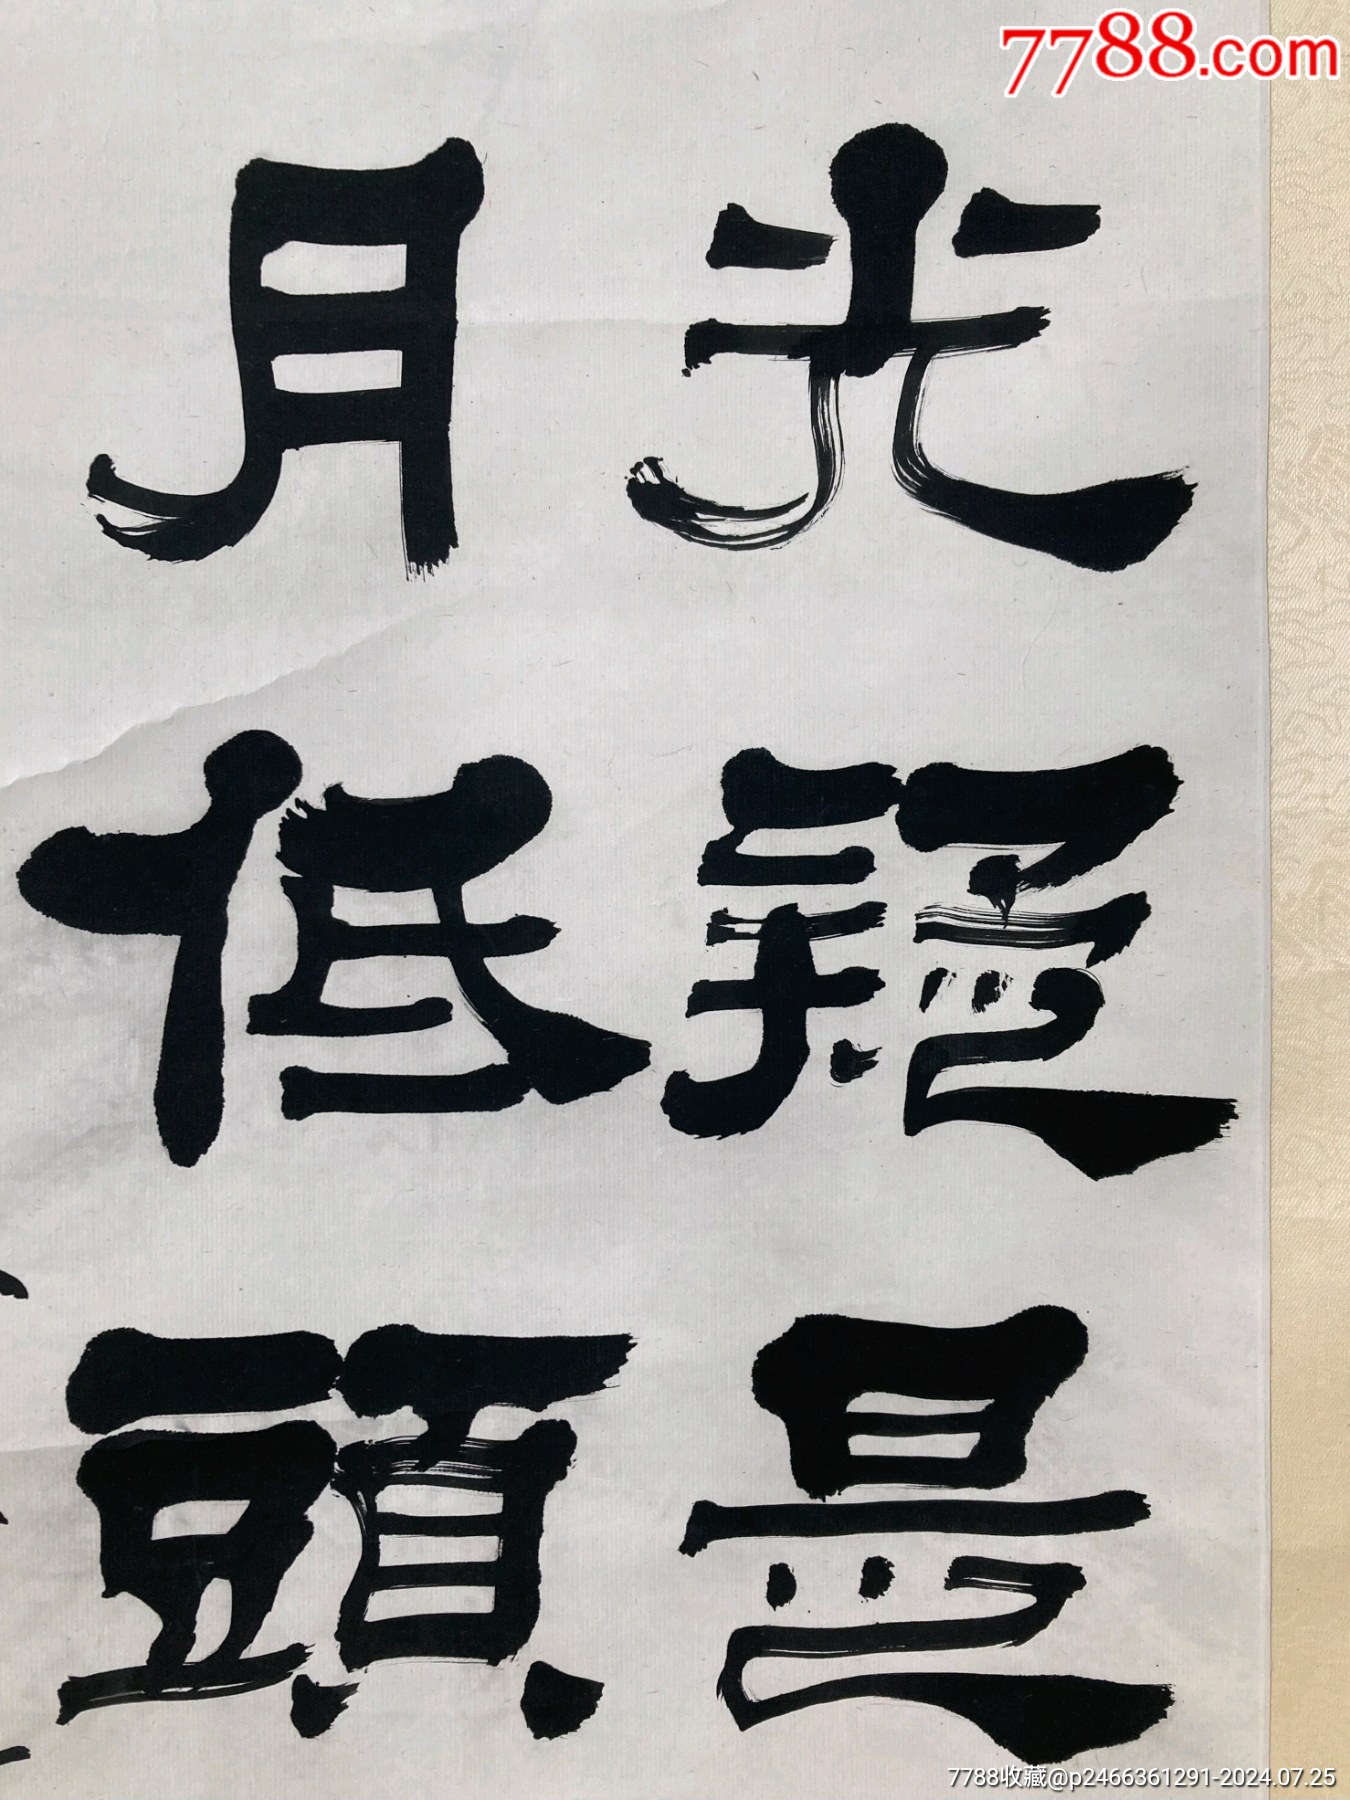 7788.com
光疑是
月低頭
7788收藏@p2466361291-2024.07.25